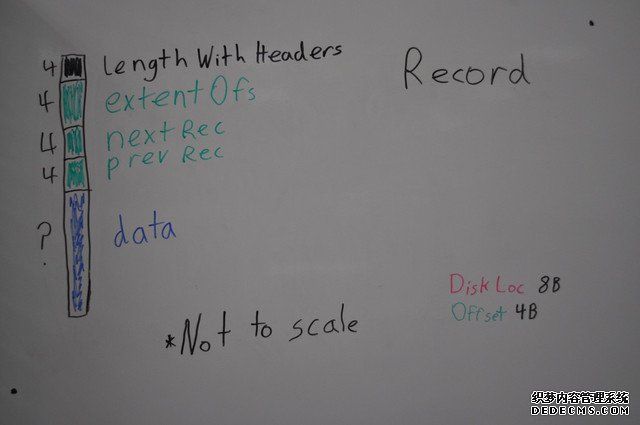 4 Length With Headers
Record
4 extentOfs
4 next Rec
4 prev Rec
? data
Disk Loc 8B
Offset 4B
*Not to scale
织梦内容管理系统
DEDECMS.COM